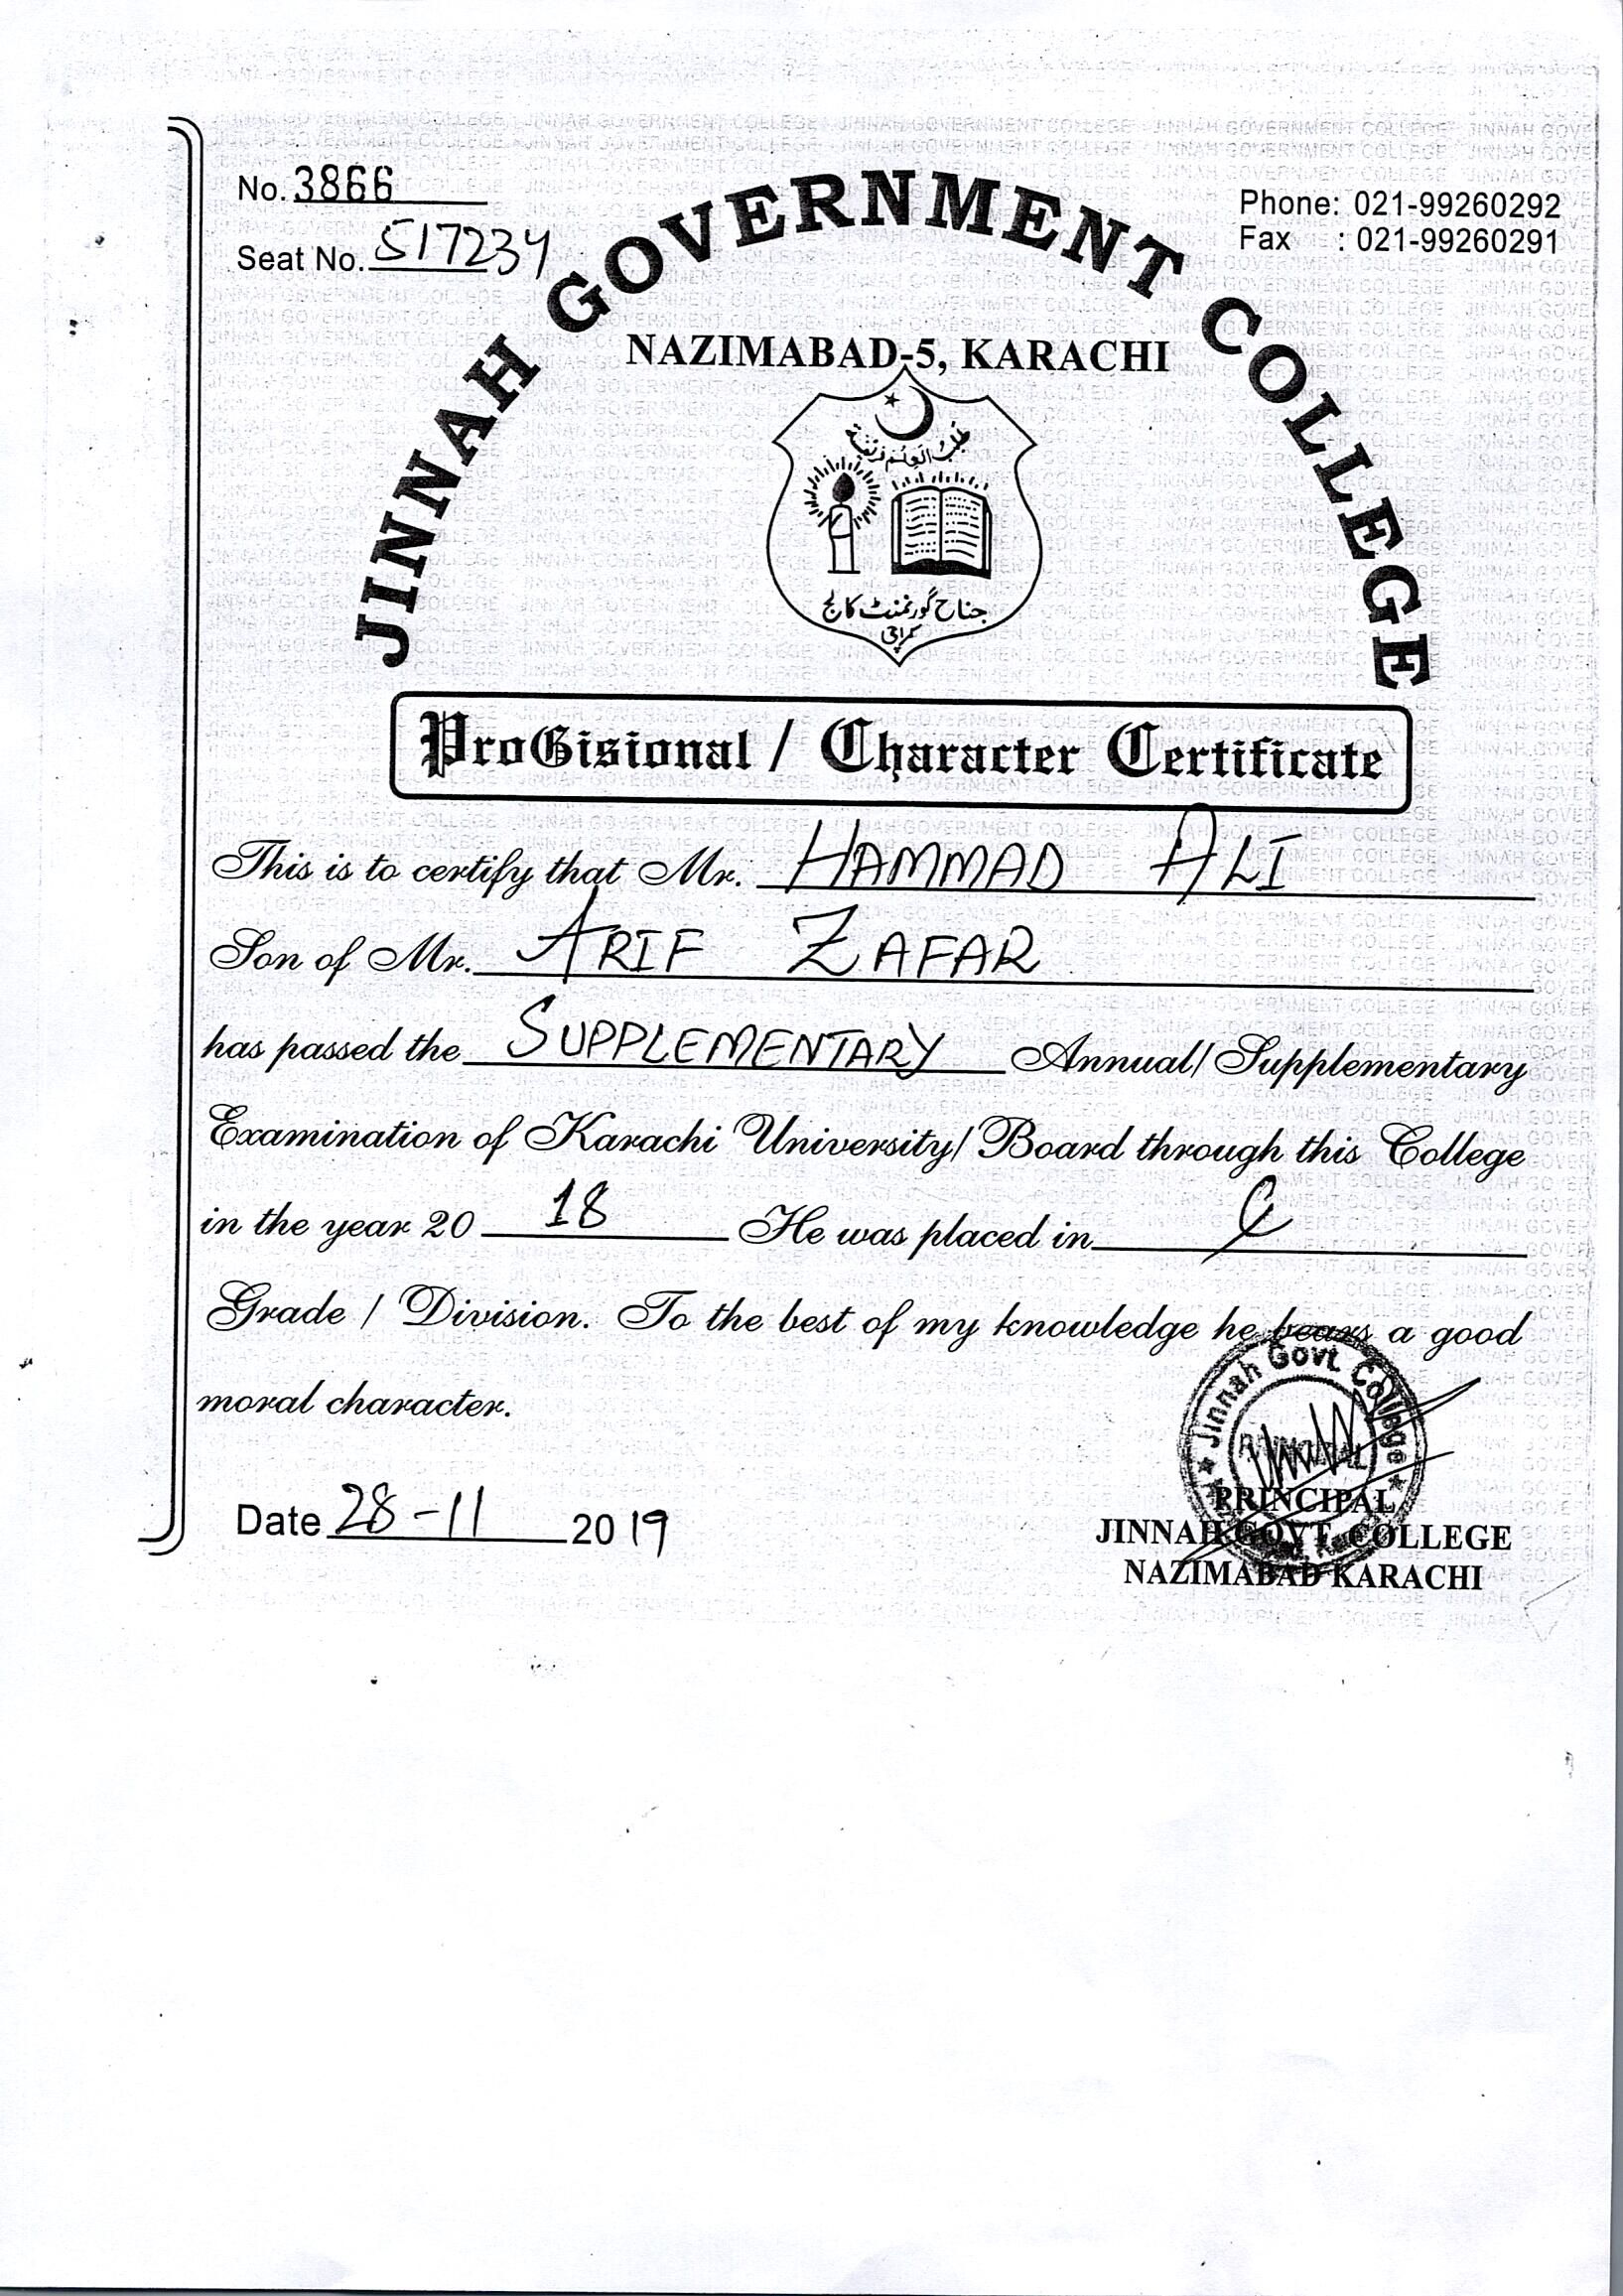 No. 3866
Seat No. 517234
Phone: 021-99260292
Fax : 021-99260291
JINNAH GOVERNMENT COLLEGE
NAZIMABAD-5, KARACHI
طلب العلم فريضة
جناح گورنمنٹ کالج
کراچی
ProGisional / Character Certificate
This is to certify that Mr. HAMMAD ALI
Son of Mr. ARIF ZAFAR
has passed the SUPPLEMENTARY Annual/Supplementary
Examination of Karachi University/Board through this College
in the year 20 18 He was placed in C
Grade / Division. To the best of my knowledge he bears a good
moral character.
Date 28-11 2019
Jinnah Govt. College
PRINCIPAL
JINNAH GOVT. COLLEGE
NAZIMABAD KARACHI